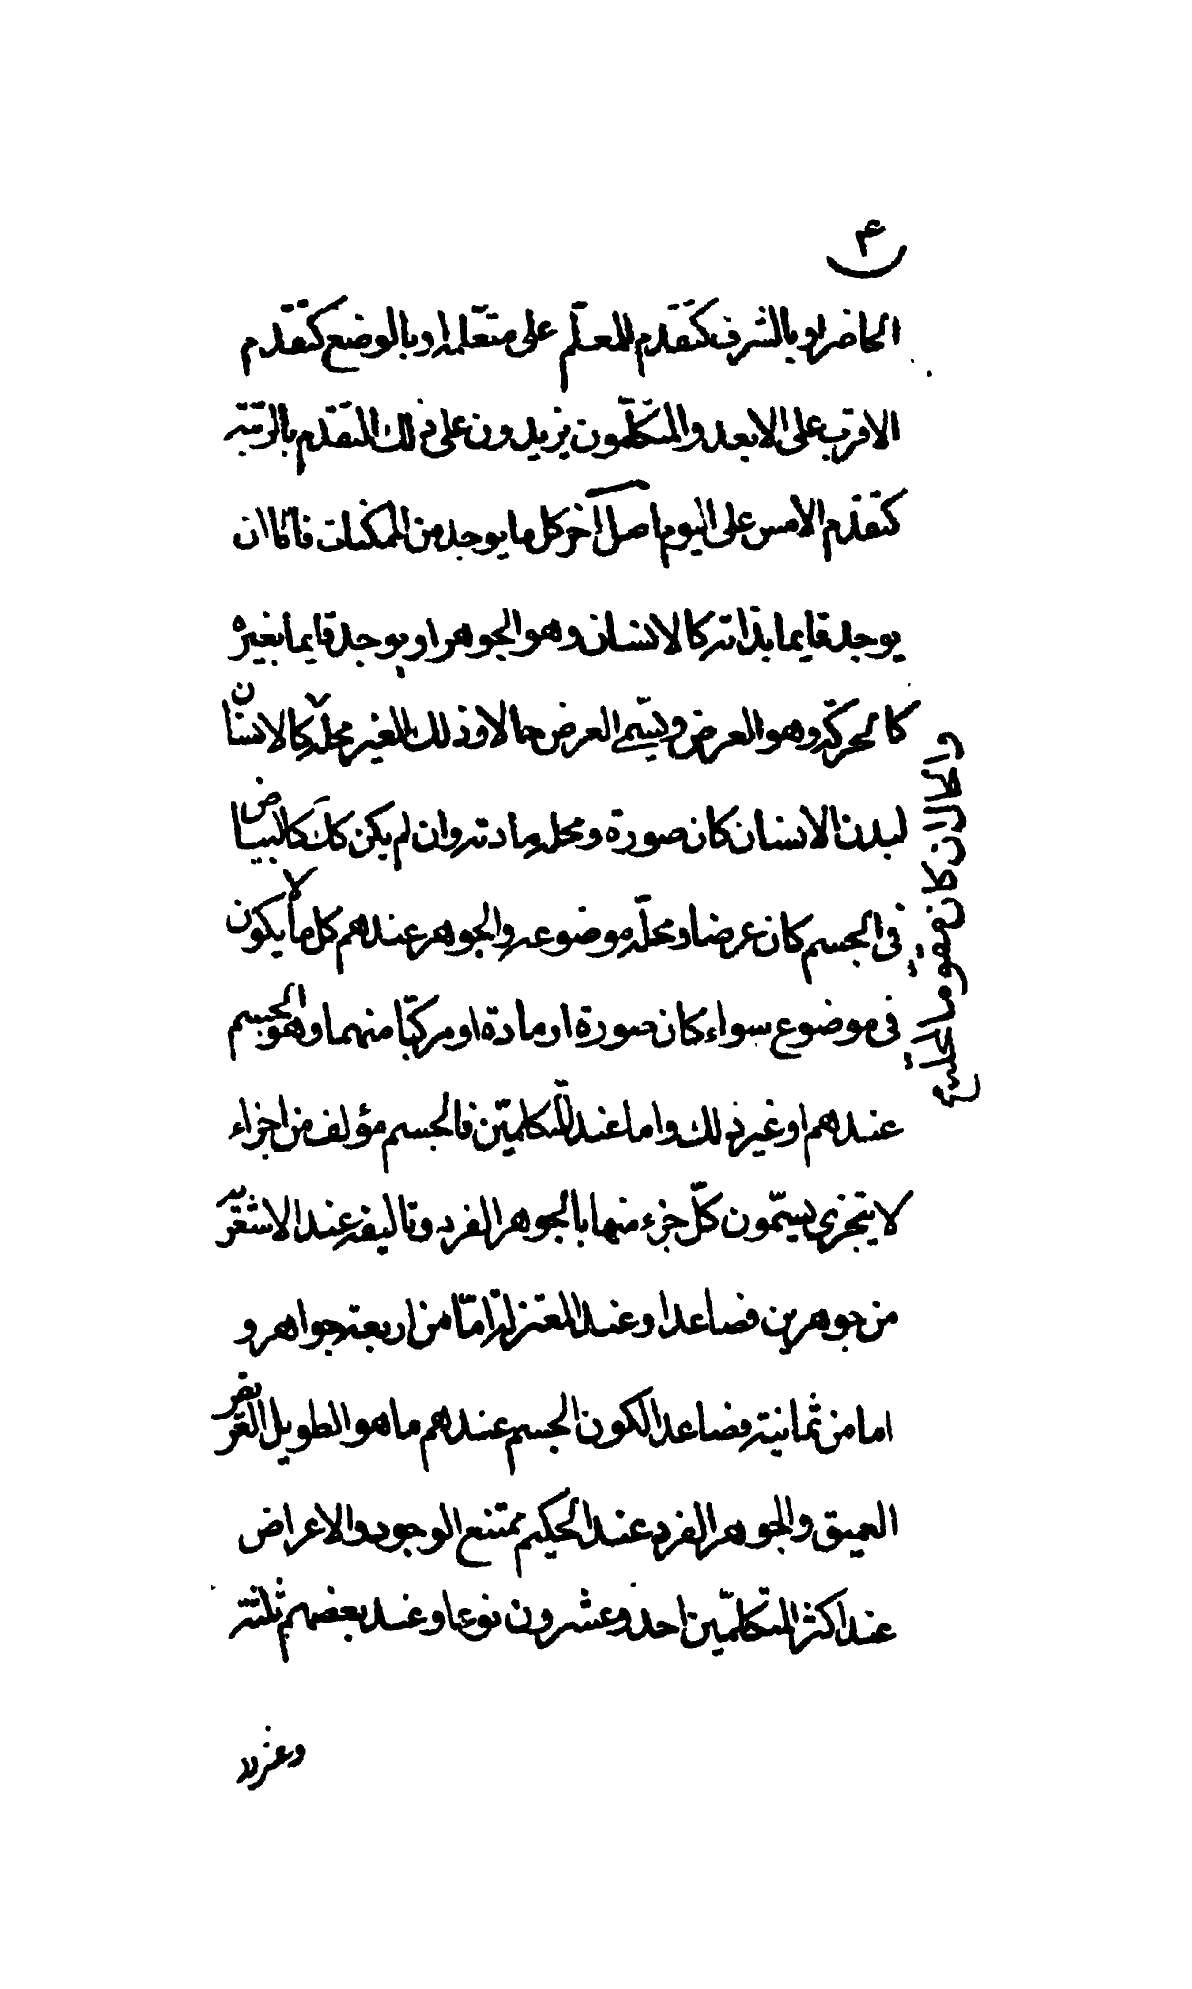 ۴
الحاضر او بالشرف كتقدم المعلّم على متعلمه او بالوضع كتقدم
الاقرب على الابعد والمتكلّمون يزيدون على ذلك التقدم بالرتبة
كتقدم الامس على اليوم اصل آخر كل ما يوجد من الممكنات فامّا ان
يوجد قايما بذاته كالانسان وهو الجوهر او يوجد قايما بغيره
كالحركة وهو العرض ويسمّى العرض حالا وذلك الغير محلّه كالانسان
لبدن الانسان كان صورة ومحله مادته وان لم يكن كك كالبياض
فى الجسم كان عرضا ومحلّه موضوعه والجوهر عندهم كل ما لا يكون
فى موضوع سواء كان صورة او مادة او مركبّا منهما وهو الجسم
عندهم او غير ذلك واما عند المتكلمّين فالجسم مؤلف من اجزاء
لا يتجزى يسمّون كلّ جزء منها بالجوهر الفرد وتاليفه عند الاشعرّيه
من جوهرين فصاعدا وعند المعتزلة امّا من اربعة جواهر و
اما من ثمانية فصاعدا لكون الجسم عندهم ما هو الطويل العريض
العميق والجوهر الفرد عند الحكيم ممتنع الوجود والاعراض
عند اكثر المتكلمّين احد وعشرون نوعا وعند بعضهم ثلثة
وعشرون
والحال ان كان مقوما لمحله